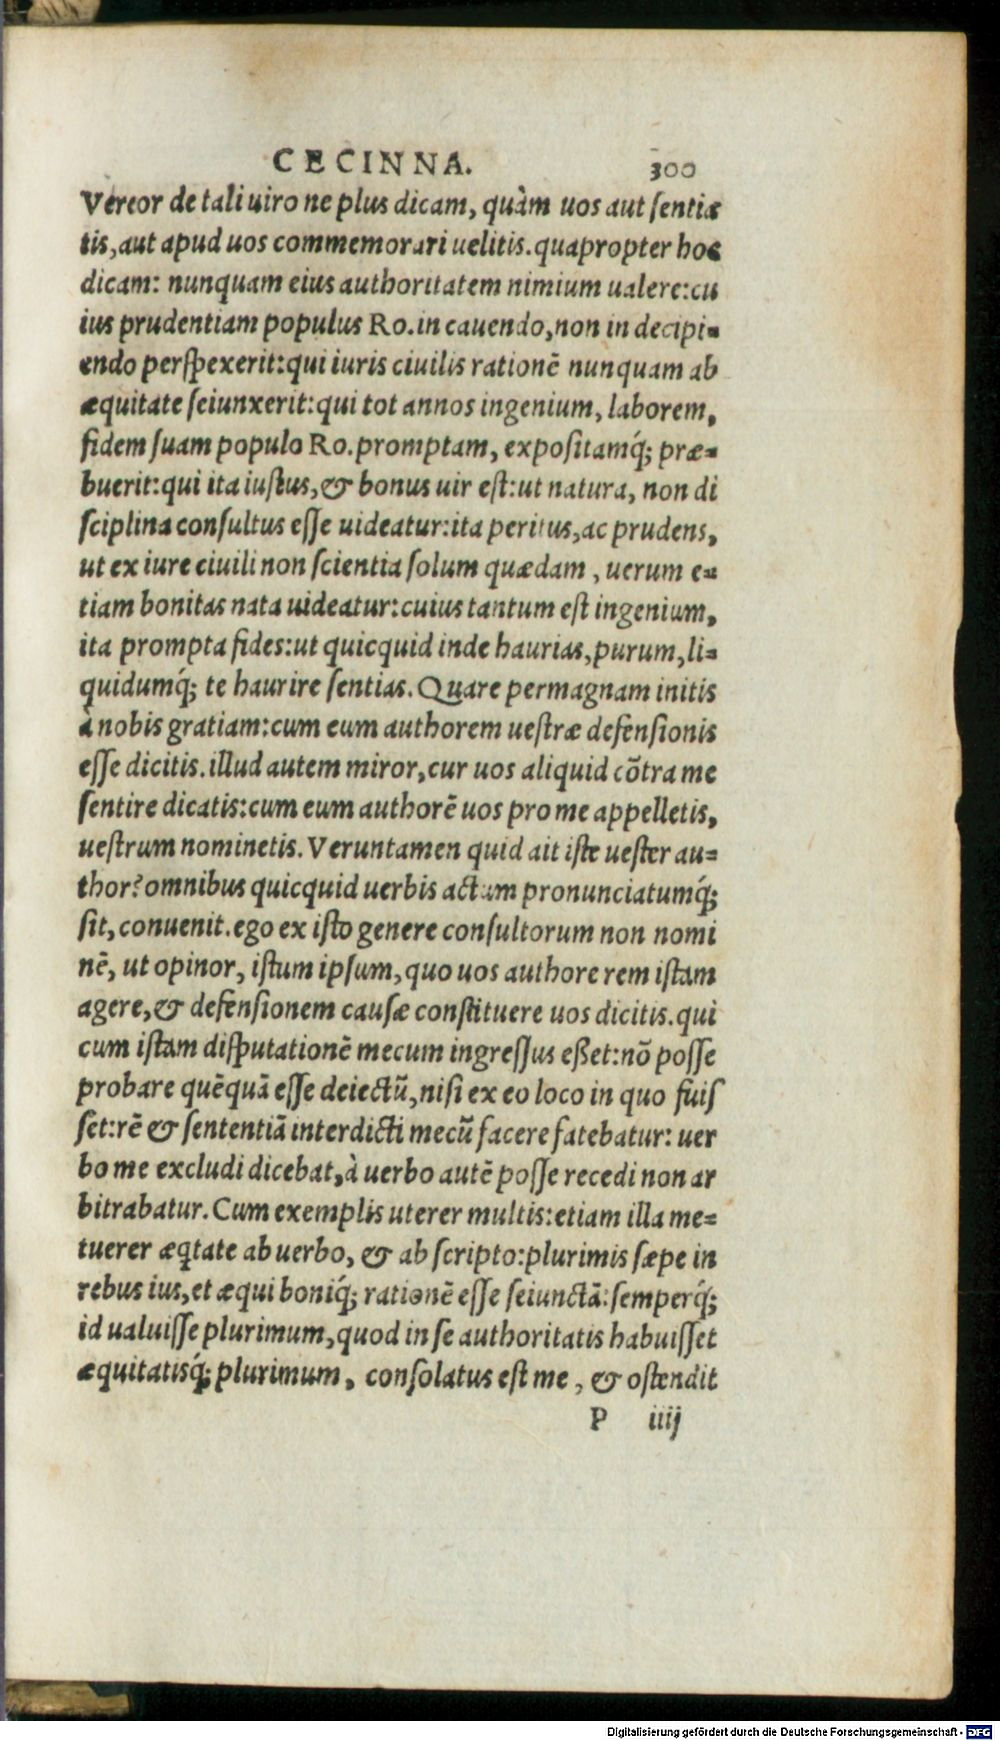 CECINNA. 300
Vereor de tali uiro ne plus dicam, quàm uos aut sentia
tis, aut apud uos commemorari uelitis. quapropter hoc
dicam: nunquam eius authoritatem nimium ualere: cu
ius prudentiam populus Ro. in cauendo, non in decipi-
endo perspexerit: qui iuris ciuilis rationē nunquam ab
æquitate seiunxerit: qui tot annos ingenium, laborem,
fidem suam populo Ro. promptam, expositamq́; præ-
buerit: qui ita iustus, & bonus uir est: ut natura, non di
sciplina consultus esse uideatur: ita peritus, ac prudens,
ut ex iure ciuili non scientia solum quædam, uerum e-
tiam bonitas nata uideatur: cuius tantum est ingenium,
ita prompta fides: ut quicquid inde haurias, purum, li-
quidumq́; te haurire sentias. Quare permagnam initis
à nobis gratiam: cum eum authorem uestræ defensionis
esse dicitis. illud autem miror, cur uos aliquid cōtra me
sentire dicatis: cum eum authorē uos pro me appelletis,
uestrum nominetis. Veruntamen quid ait iste uester au-
thor? omnibus quicquid uerbis actum pronunciatumq́;
sit, conuenit. ego ex isto genere consultorum non nomi
nē, ut opinor, istum ipsum, quo uos authore rem istam
agere, & defensionem causæ constituere uos dicitis. qui
cum istam disputationē mecum ingressus eßet: nō posse
probare quēquā esse deiectū, nisi ex eo loco in quo fuis
set: rē & sententiā interdicti mecū facere fatebatur: uer
bo me excludi dicebat, à uerbo autē posse recedi non ar
bitrabatur. Cum exemplis uterer multis: etiam illa me-
tuerer æq̃tate ab uerbo, & ab scripto: plurimis sæpe in
rebus ius, et æqui boniq́; rationē esse seiunctā: semperq́;
id ualuisse plurimum, quod in se authoritatis habuisset
æquitatisq́; plurimum, consolatus est me, & ostendit
P iiij
Digitalisierung gefördert durch die Deutsche Forschungsgemeinschaft - DFG